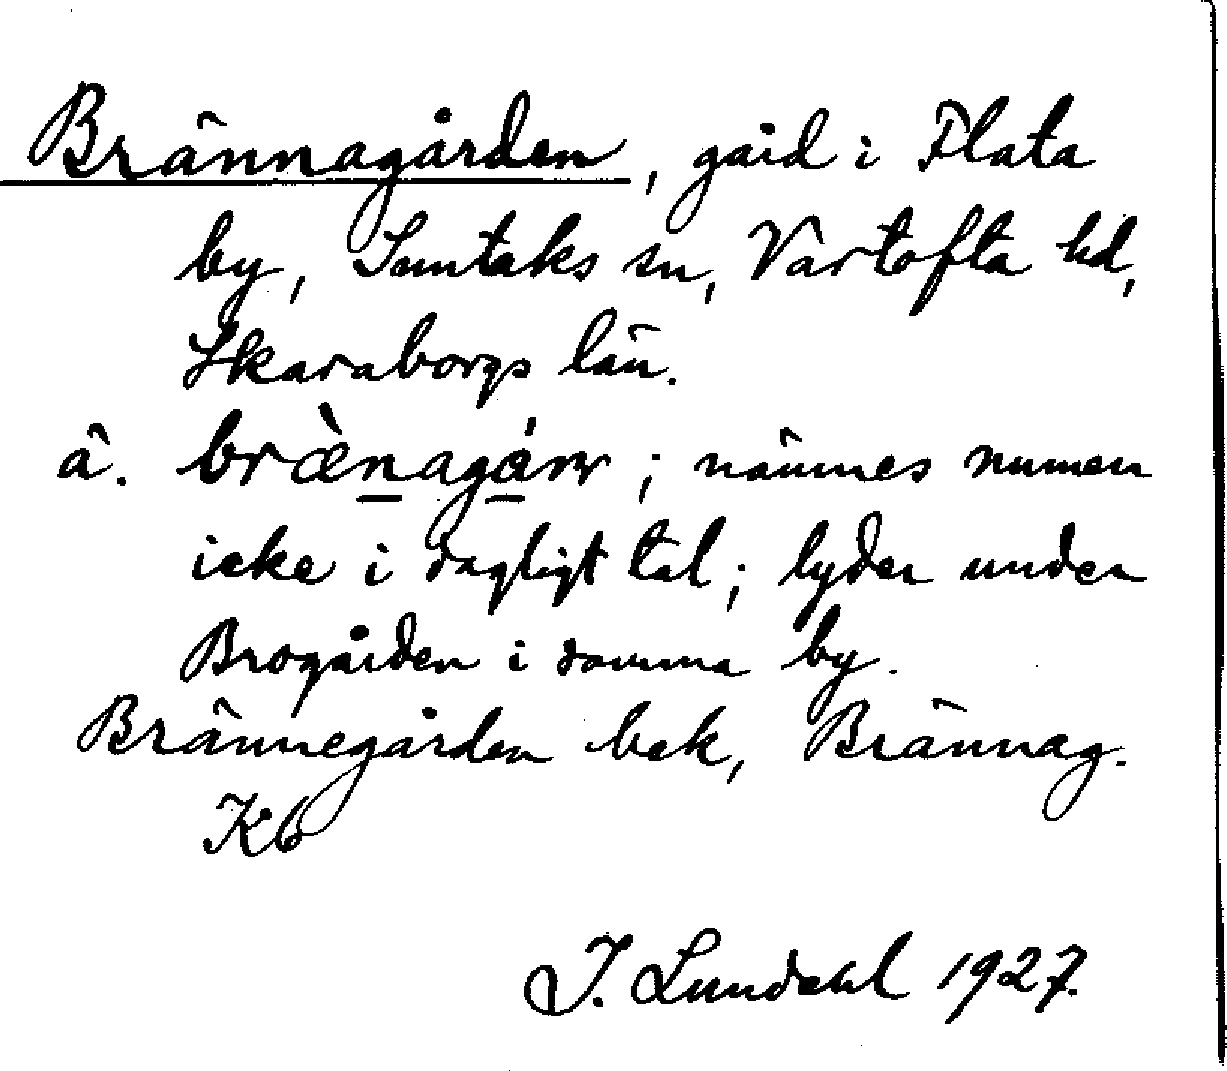 Brännagården, gård i Flata
by, Suntaks sn, Vartofta hd,
Skaraborgs län.
â. brænagárn; nämnes numen
icke i dagligt tal; lyder under
Brogården i samma by.
Brännegården bek, Brännag.
Kb
I. Lundahl 1927.